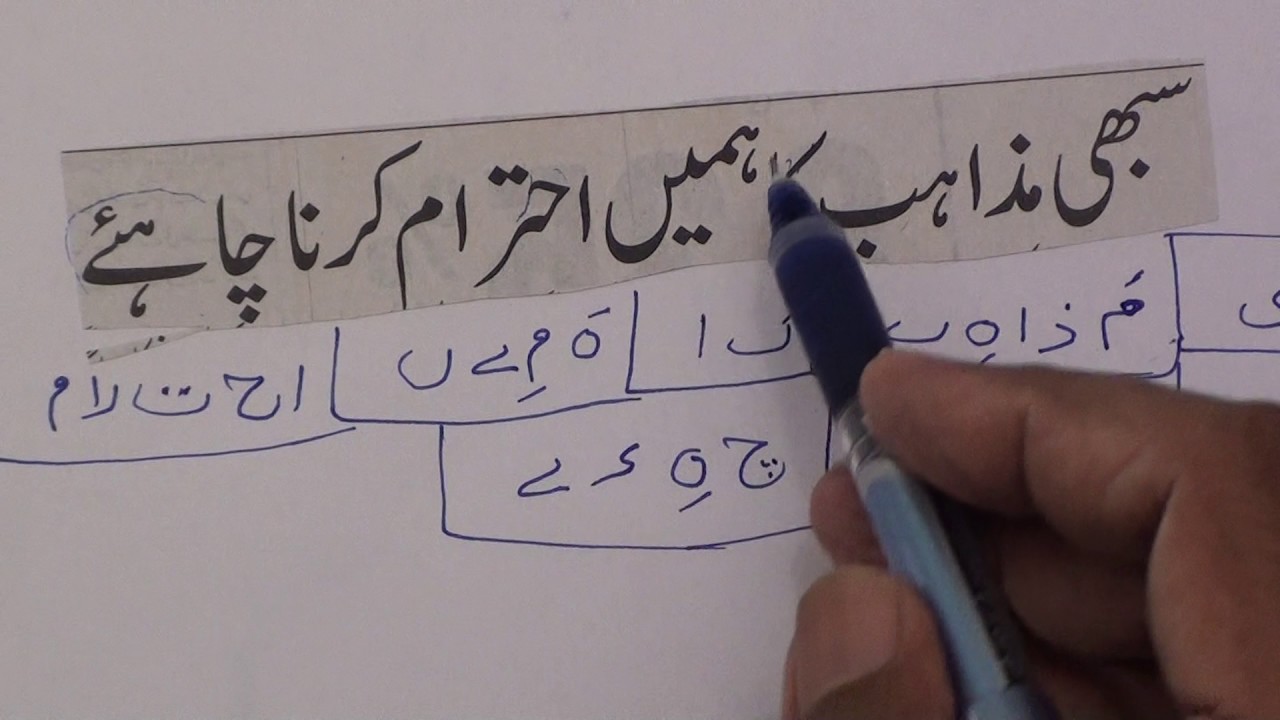 سبھی مذاہب کا ہمیں احترام کرنا چاہئے
مَ ذ ا ہِ ب ک ا ہَ مِ ے ں
ا ح ت ر ا م
چ ہِ ء ے